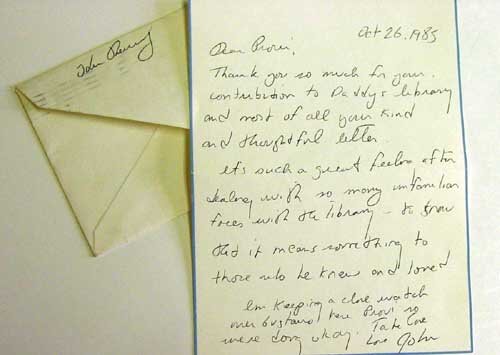 John
Oct 26. 1985
Dear Provi,
Thank you so much for your
contribution to Daddy's library
and most of all your kind
and thoughtful letter.
It's such a great feeling after
dealing with so many unfamiliar
faces with the library - to know
that it means something to
those who he knew and loved
Im keeping a close watch
over here Provi so
were doing okay. Take Care
Love John